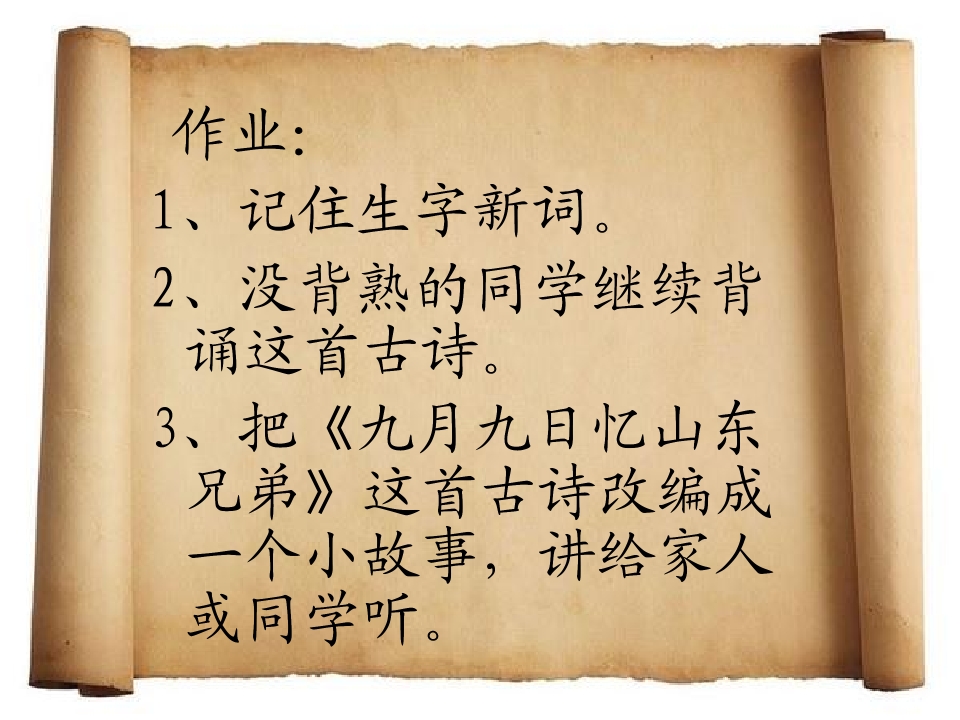 作业：
1、记住生字新词。
2、没背熟的同学继续背
诵这首古诗。
3、把《九月九日忆山东
兄弟》这首古诗改编成
一个小故事，讲给家人
或同学听。